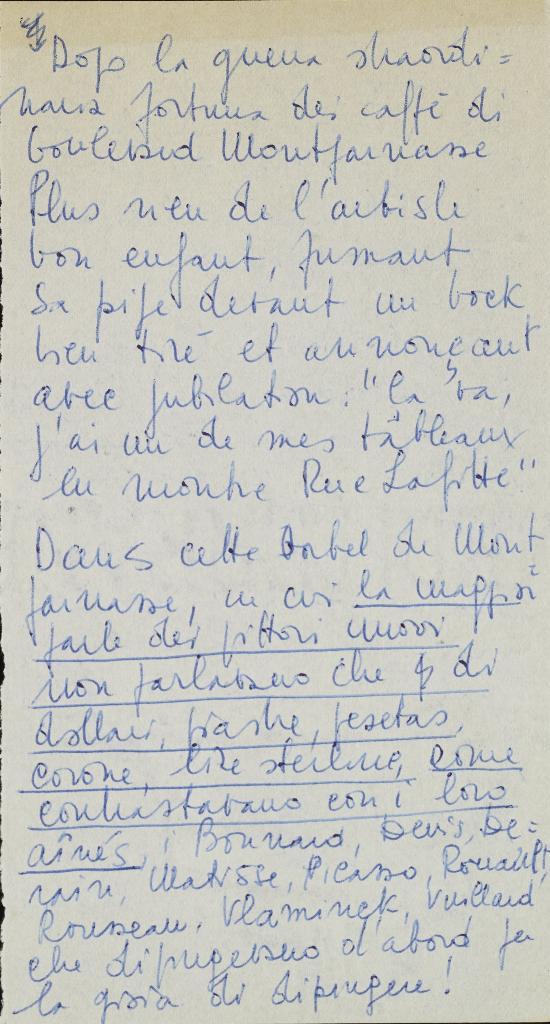 Dopo la guerra straordi=
naria fortuna dei caffè di
boulevard Montparnasse
Plus rien de l'artiste
bon enfant, fumant
sa pipe devant un bock
bien tiré et annonçant
avec jubilation: "Ca va,
j'ai un de mes tableaux
en montre Rue Lafitte"
Dans cette Babel de Mont
parnasse, in cui la maggior
parte dei pittori nuovi
non parlavano che di
dollari, piastre, pesetas,
corone, lire sterline, come
contrastavano con i loro
aînés, i Bonnard, Denis, De=
rain, Matisse, Picasso, Rouault,
Rousseau, Vlaminck, Vuillard
che dipingevano d'abord per
la gioia di dipingere!